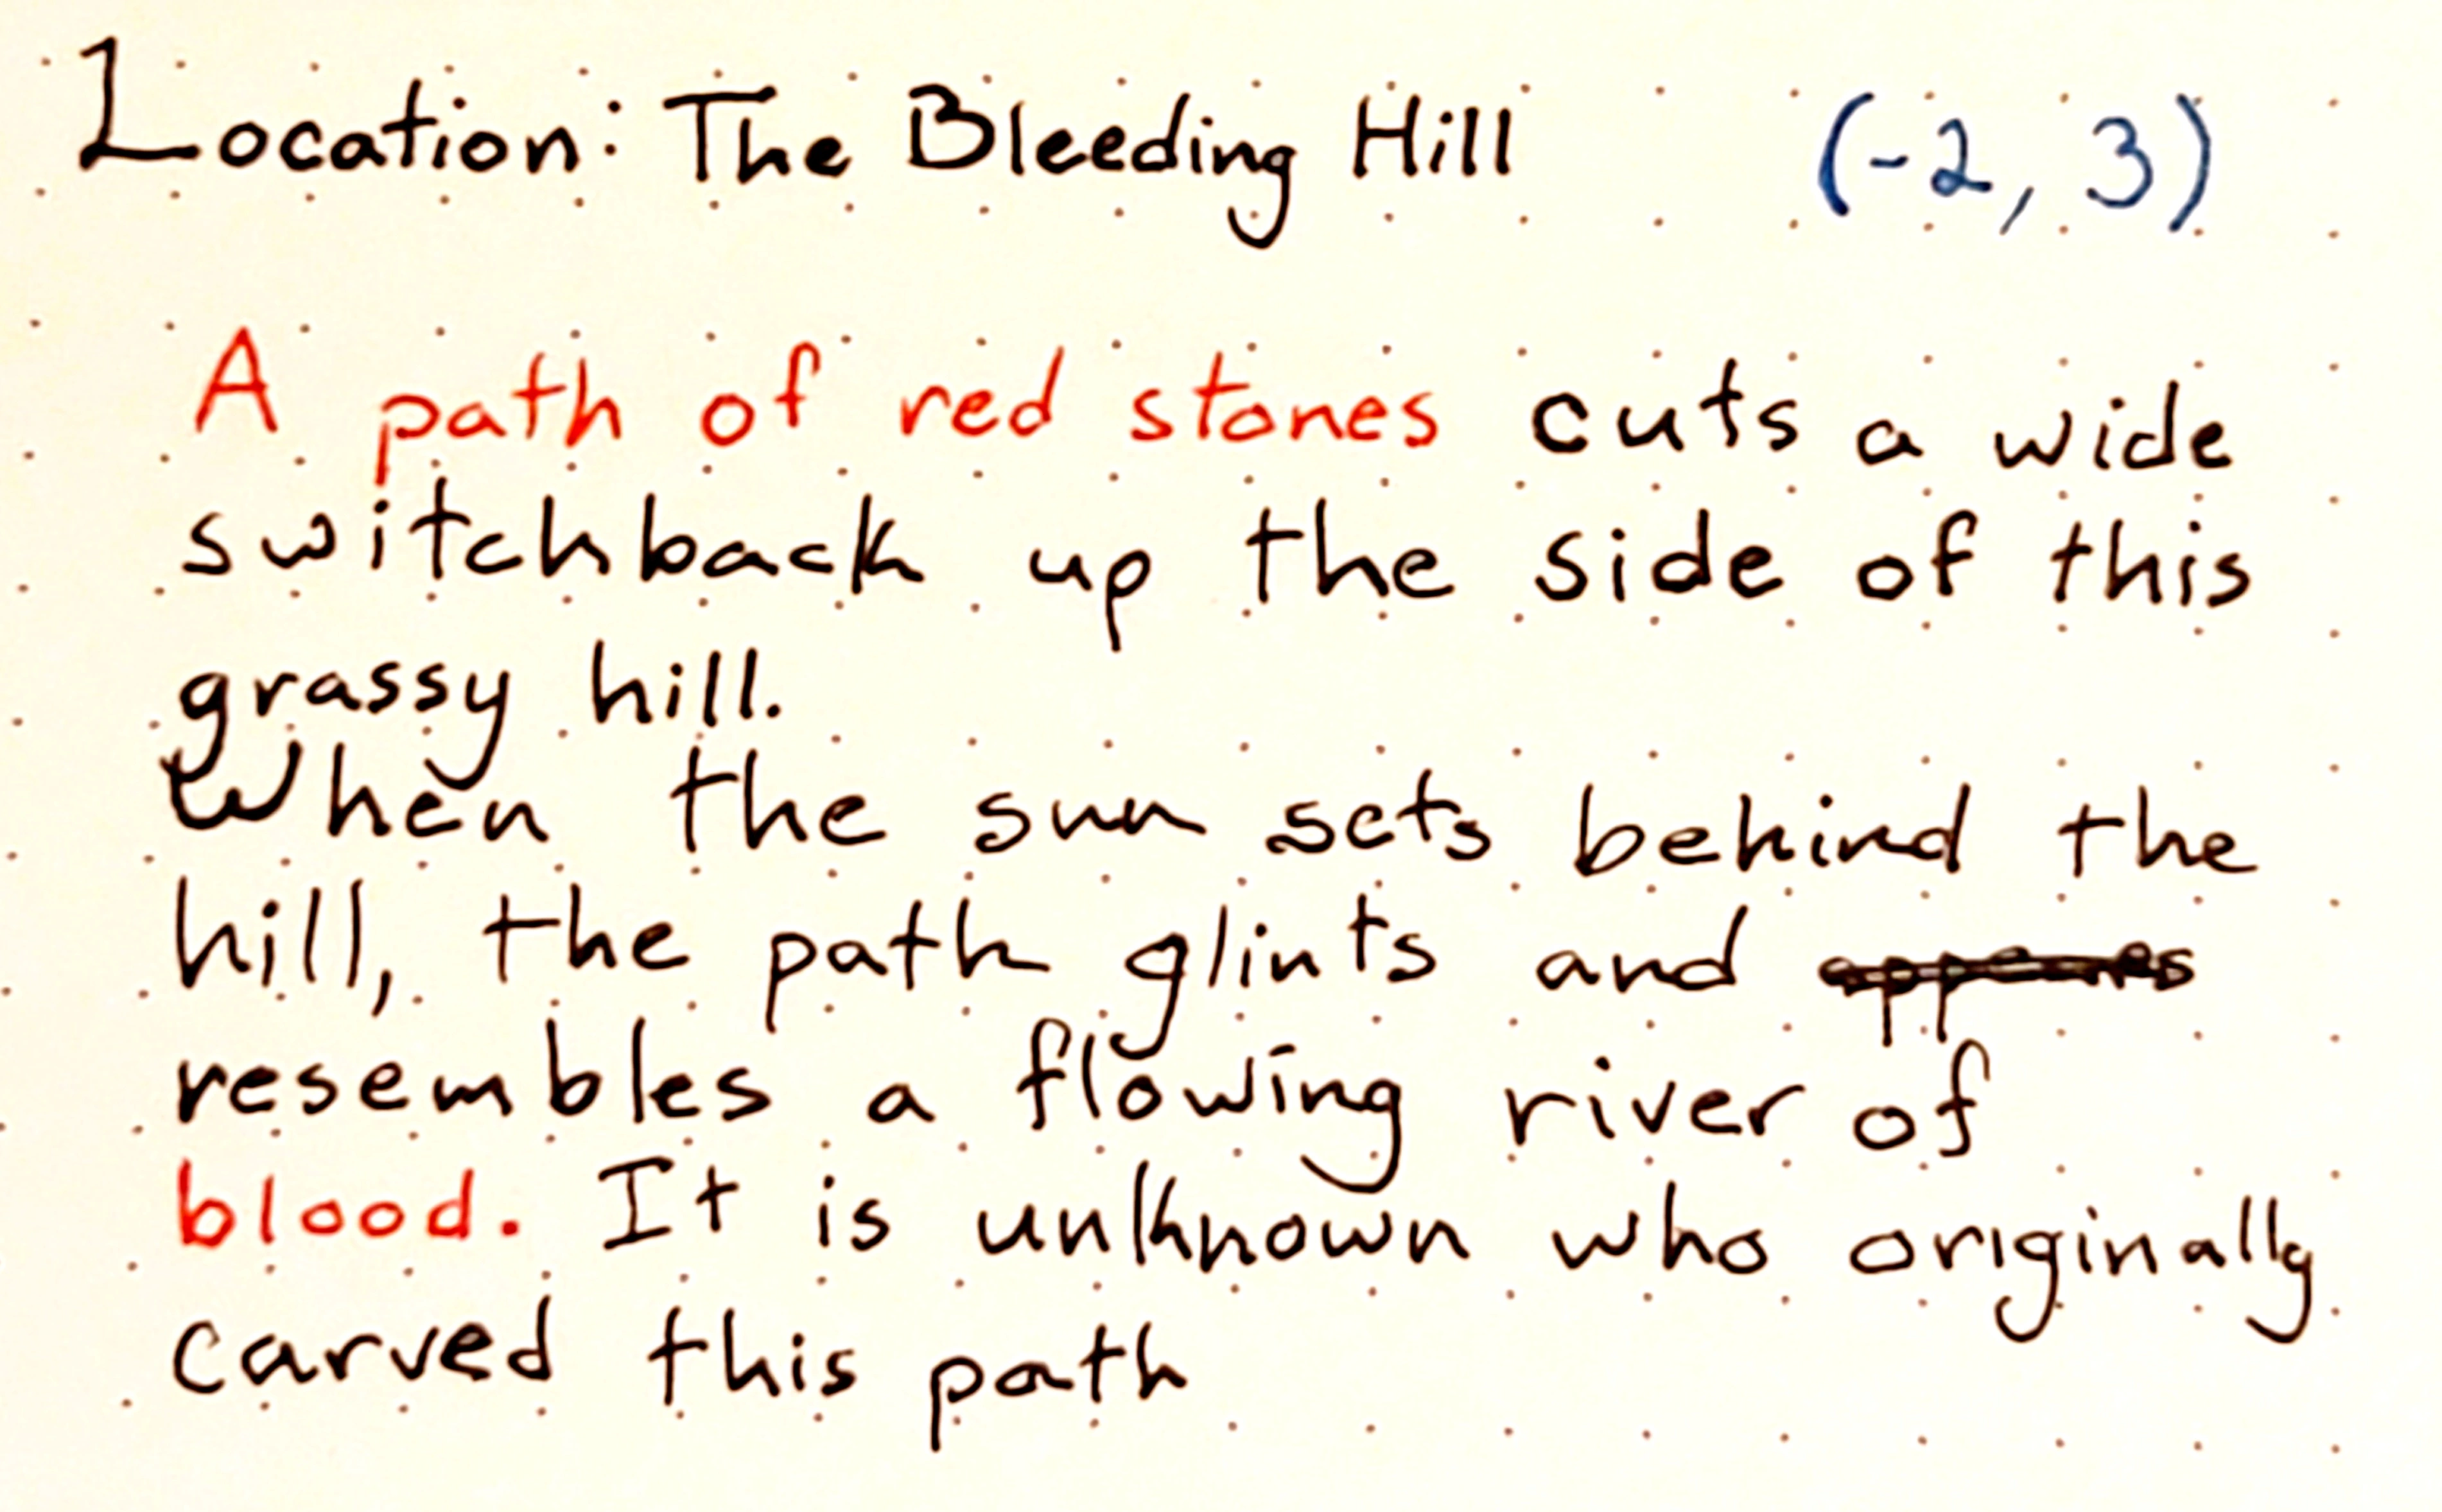 Location: The Bleeding Hill (-2, 3)
A path of red stones cuts a wide
switchback up the side of this
grassy hill.
When the sun sets behind the
hill, the path glints and
resembles a flowing river of
blood. It is unknown who originally
carved this path